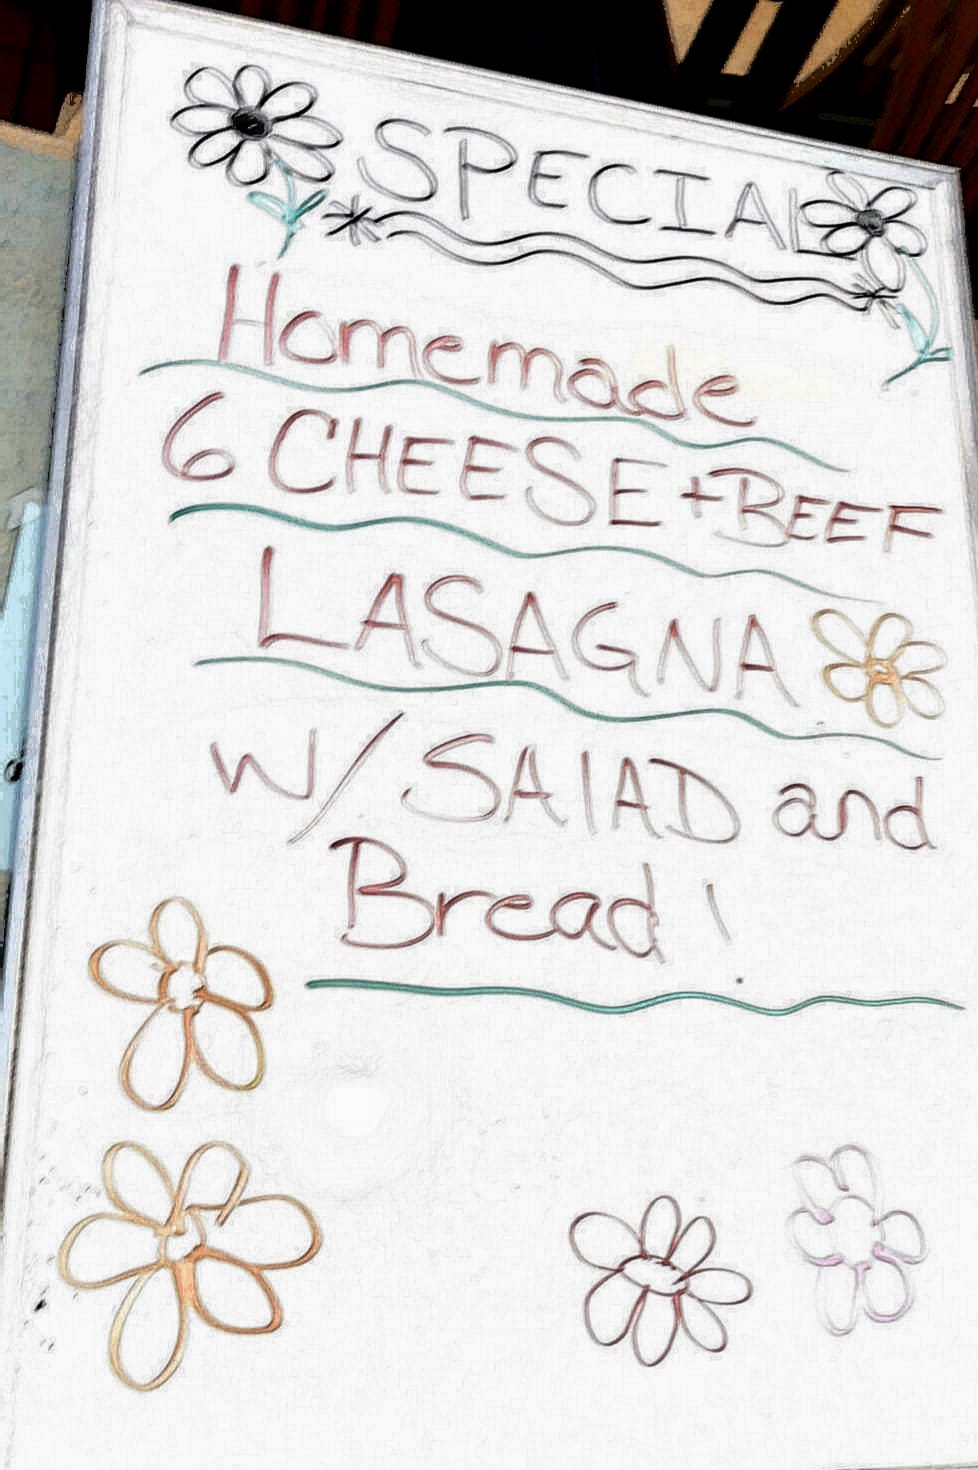 SPECIAL
Homemade
6 CHEESE + BEEF
LASAGNA
W/ SAlAD and
Bread!